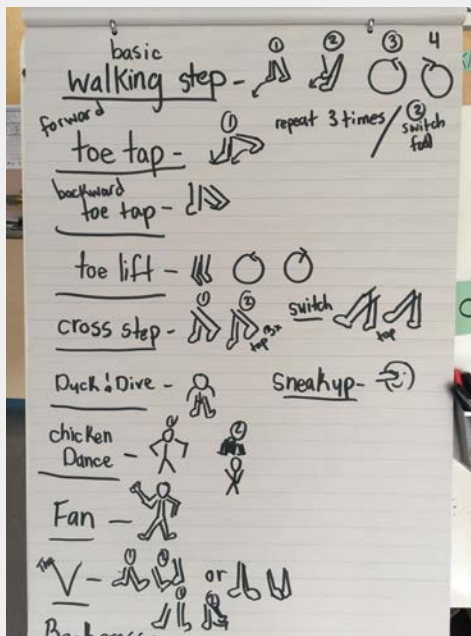 basic
walking step - ① ② ③ 4
forward
toe tap - ① repeat 3 times / ② switch
backward
toe tap -
toe lift -
cross step - ① ② 3x tap switch tap
Duck & Dive - Sneakup -
chicken
Dance - ① ②
Fan -
The
V - ① ② or
① ②